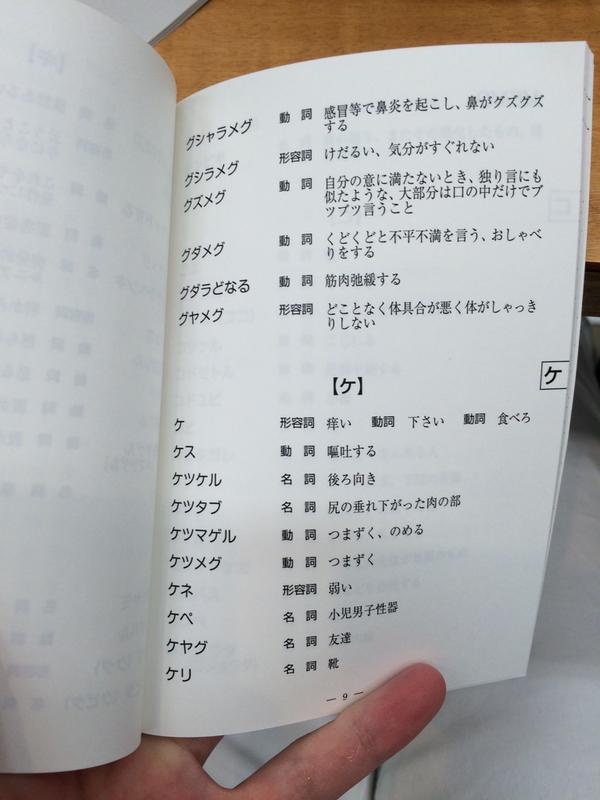 グシャラメグ 動詞 感冒等で鼻炎を起こし、鼻がグズグズ
する
グシラメグ 形容詞 けだるい、気分がすぐれない
グズメグ 動詞 自分の意に満たないとき、独り言にも
似たような、大部分は口の中だけでブ
ツブツ言うこと
グダメグ 動詞 くどくどと不平不満を言う、おしゃべ
りをする
グダラどなる 動詞 筋肉弛緩する
グヤメグ 形容詞 どことなく体具合が悪く体がしゃっき
りしない
【ケ】
ケ
ケ 形容詞 痒い 動詞 下さい 動詞 食べろ
ケス 動詞 嘔吐する
ケツケル 名詞 後ろ向き
ケツタブ 名詞 尻の垂れ下がった肉の部
ケツマゲル 動詞 つまずく、のめる
ケツメグ 動詞 つまずく
ケネ 形容詞 弱い
ケペ 名詞 小児男子性器
ケヤグ 名詞 友達
ケリ 名詞 靴
— 9 —